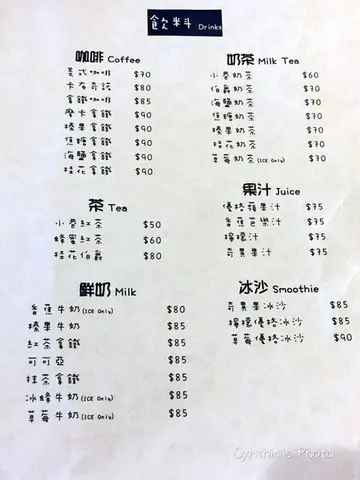 飲料 Drinks
咖啡 Coffee
美式咖啡 $70
卡布奇諾 $80
拿鐵咖啡 $85
摩卡拿鐵 $90
榛果拿鐵 $90
焦糖拿鐵 $90
海鹽拿鐵 $90
桂花拿鐵 $90
奶茶 Milk Tea
小春奶茶 $60
伯爵奶茶 $70
海鹽奶茶 $70
焦糖奶茶 $70
榛果奶茶 $70
桂花奶茶 $70
草莓奶茶(ICE Only) $70
茶 Tea
小春紅茶 $50
蜂蜜紅茶 $60
桂花伯爵 $80
果汁 Juice
優格蘋果汁 $75
香蕉芭樂汁 $75
檸檬汁 $75
奇異果汁 $75
鮮奶 Milk
香蕉牛奶(ICE Only) $80
榛果牛奶 $85
紅茶拿鐵 $85
可可亞 $85
抹茶拿鐵 $85
冰蜂牛奶(ICE Only) $85
草莓牛奶(ICE Only) $85
冰沙 Smoothie
奇異果冰沙 $85
檸檬優格冰沙 $85
草莓優格冰沙 $90
Cynthia's Photo